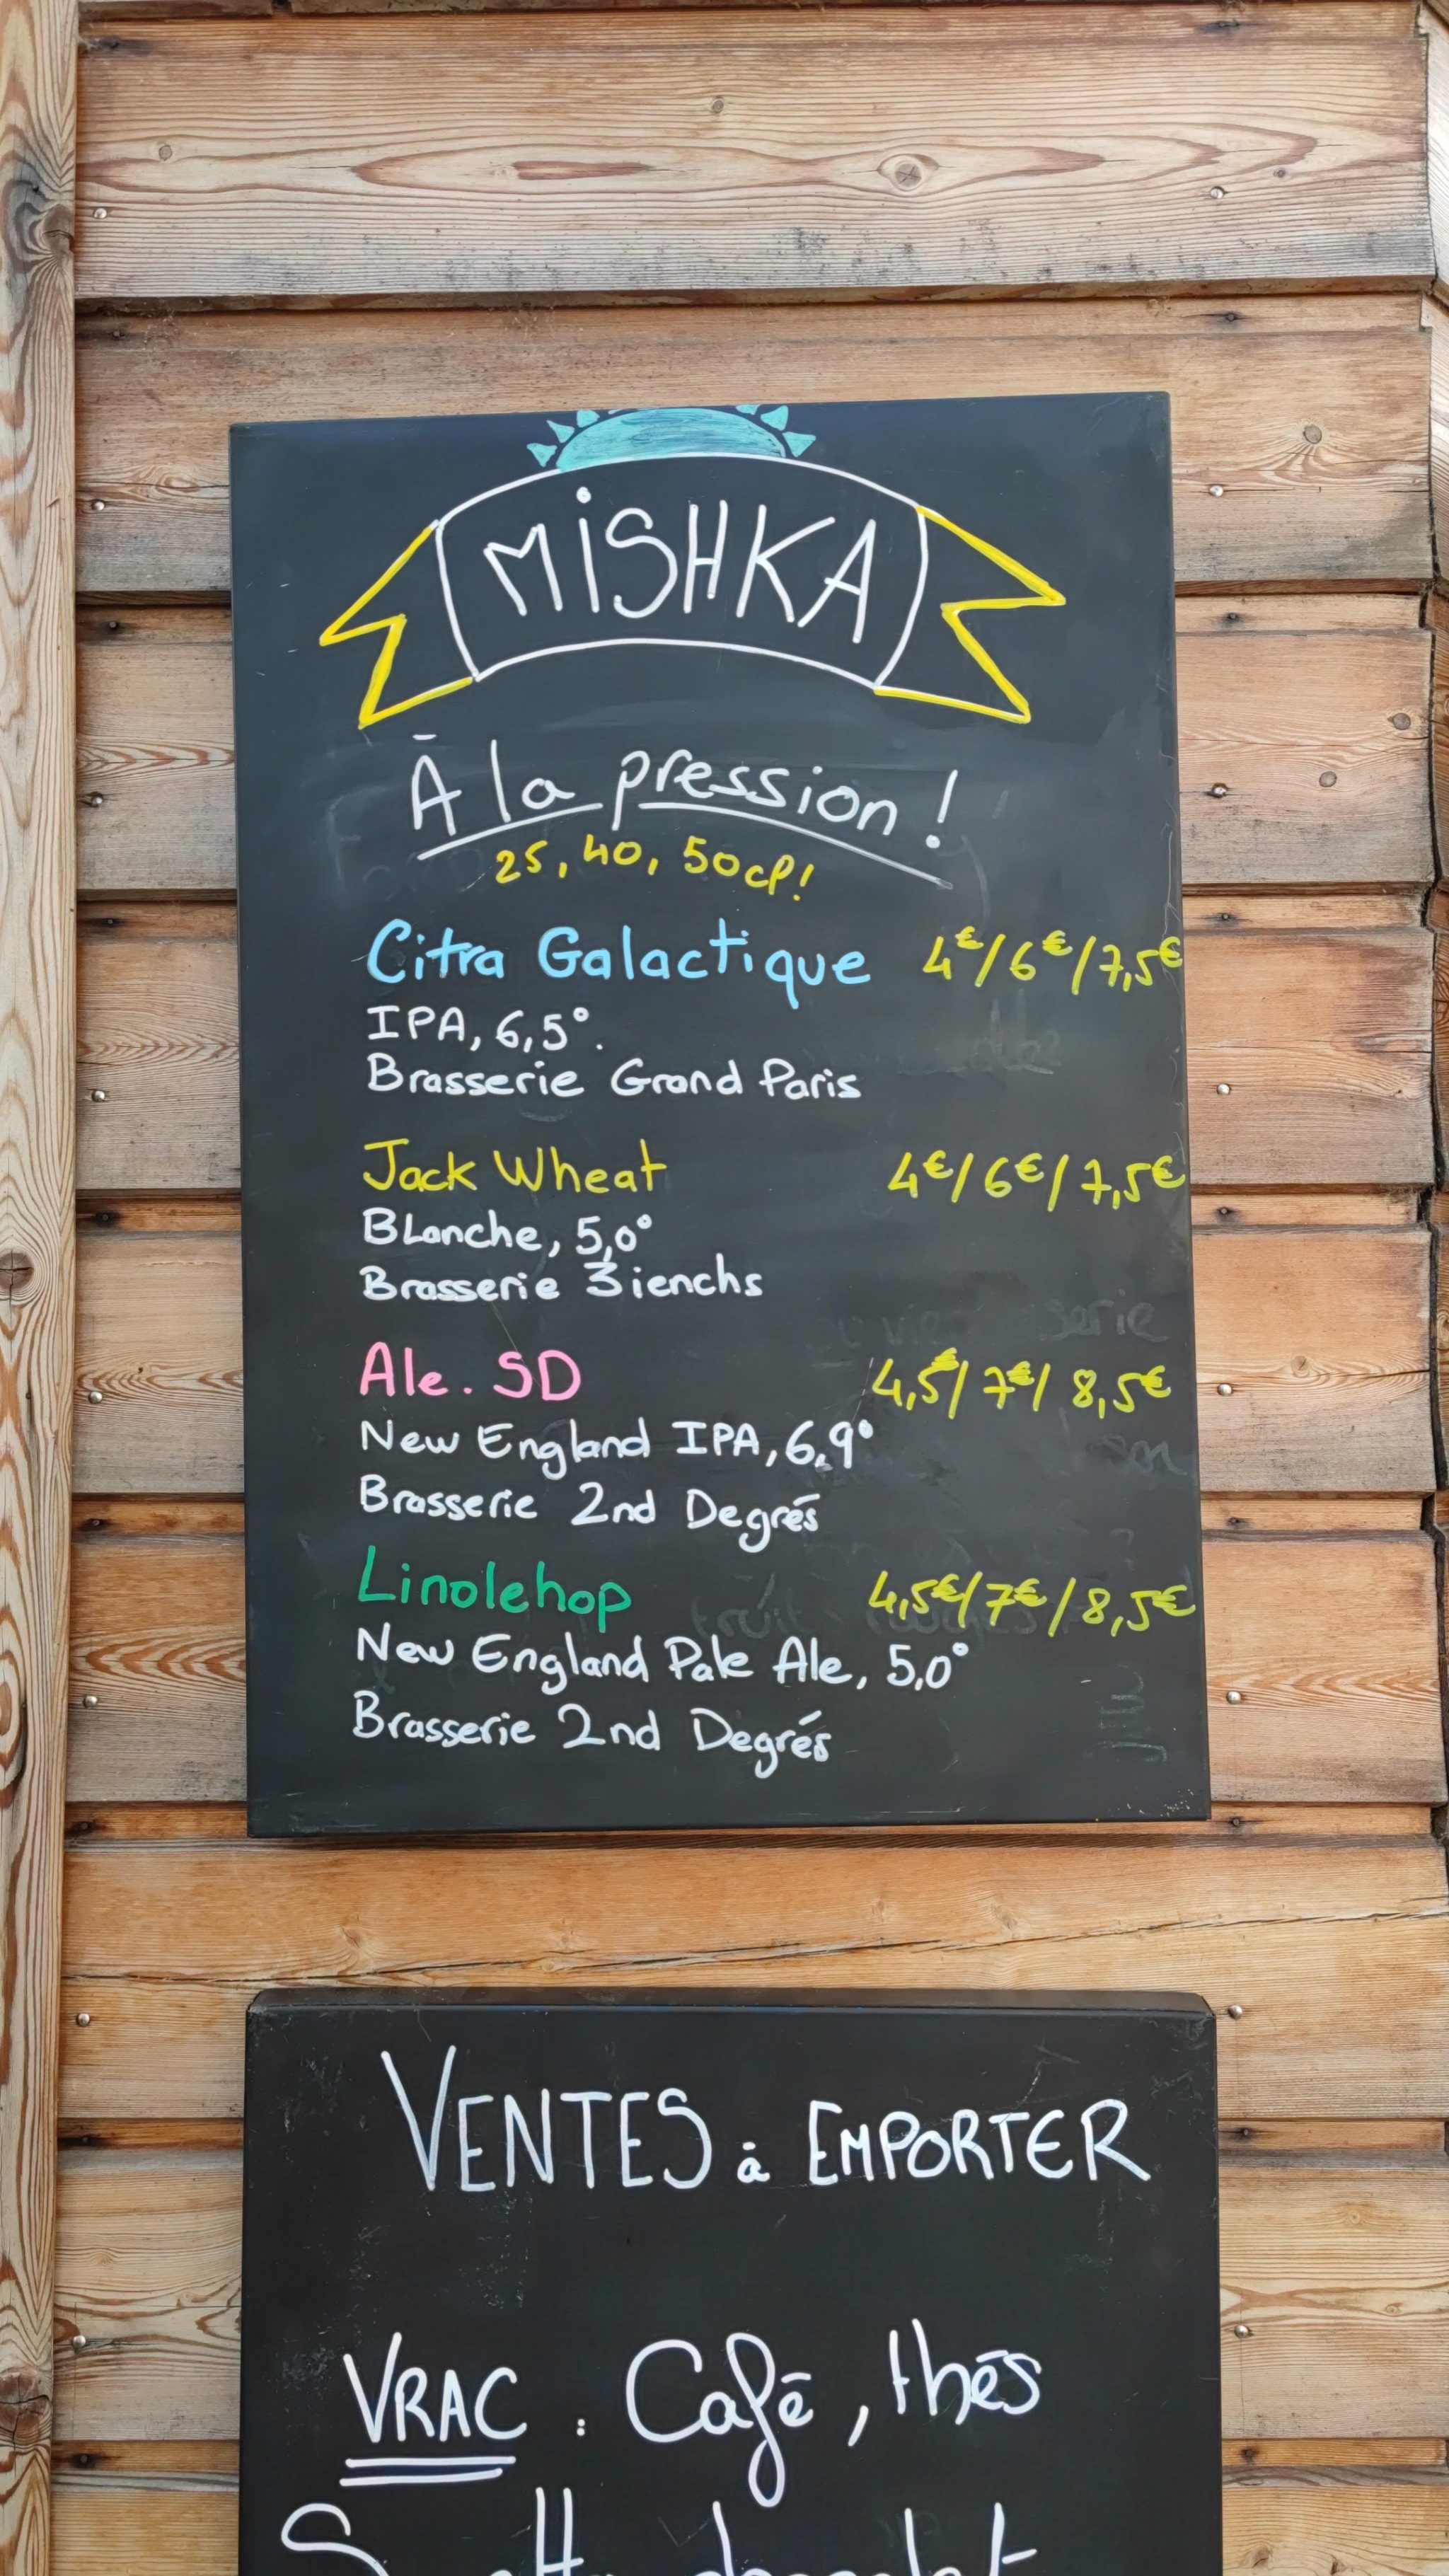 MiSHKA
À la pression !
25, 40, 50cl!
Citra Galactique 4€/6€/7,5€
IPA, 6,5°.
Brasserie Grand Paris
Jack Wheat 4€/6€/7,5€
Blanche, 5,0°
Brasserie 3ienchs
Ale.SD 4,5€/7€/8,5€
New England IPA, 6,9°
Brasserie 2nd Degrés
Linolehop 4,5€/7€/8,5€
New England Pale Ale, 5,0°
Brasserie 2nd Degrés
VENTES à EMPORTER
VRAC : Café, thés